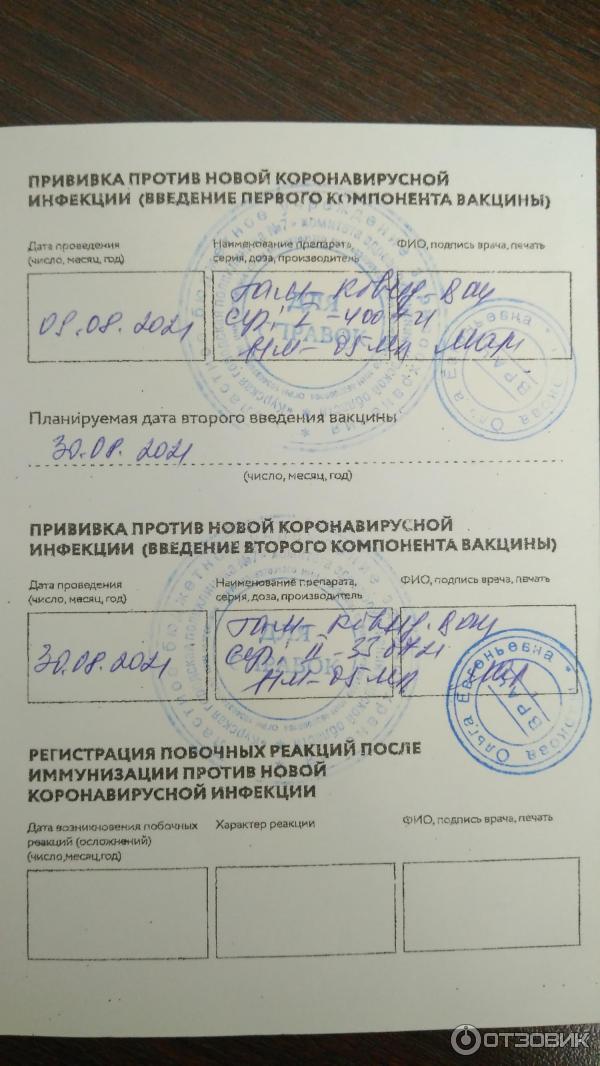 ПРИВИВКА ПРОТИВ НОВОЙ КОРОНАВИРУСНОЙ
ИНФЕКЦИИ (ВВЕДЕНИЕ ПЕРВОГО КОМПОНЕНТА ВАКЦИНЫ)
Дата проведения
(число, месяц, год)
Наименование препарата,
серия, доза, производитель
ФИО, подпись врача, печать
09.08.2021
Гам-Ковид-Вак
сер. I
ДЛЯ
СПРАВОК
ВРАЧ
Ольга Евгеньевна
Планируемая дата второго введения вакцины
30.08.2021
(число, месяц, год)
ПРИВИВКА ПРОТИВ НОВОЙ КОРОНАВИРУСНОЙ
ИНФЕКЦИИ (ВВЕДЕНИЕ ВТОРОГО КОМПОНЕНТА ВАКЦИНЫ)
Дата проведения
(число, месяц, год)
Наименование препарата,
серия, доза, производитель
ФИО, подпись врача, печать
30.08.2021
Гам-Ковид-Вак
сер. II
ДЛЯ
СПРАВОК
ВРАЧ
Ольга Евгеньевна
РЕГИСТРАЦИЯ ПОБОЧНЫХ РЕАКЦИЙ ПОСЛЕ
ИММУНИЗАЦИИ ПРОТИВ НОВОЙ
КОРОНАВИРУСНОЙ ИНФЕКЦИИ
Дата возникновения побочных
реакций (осложнений)
(число,месяц,год)
Характер реакции
ФИО, подпись врача, печать
ОТЗОВИК